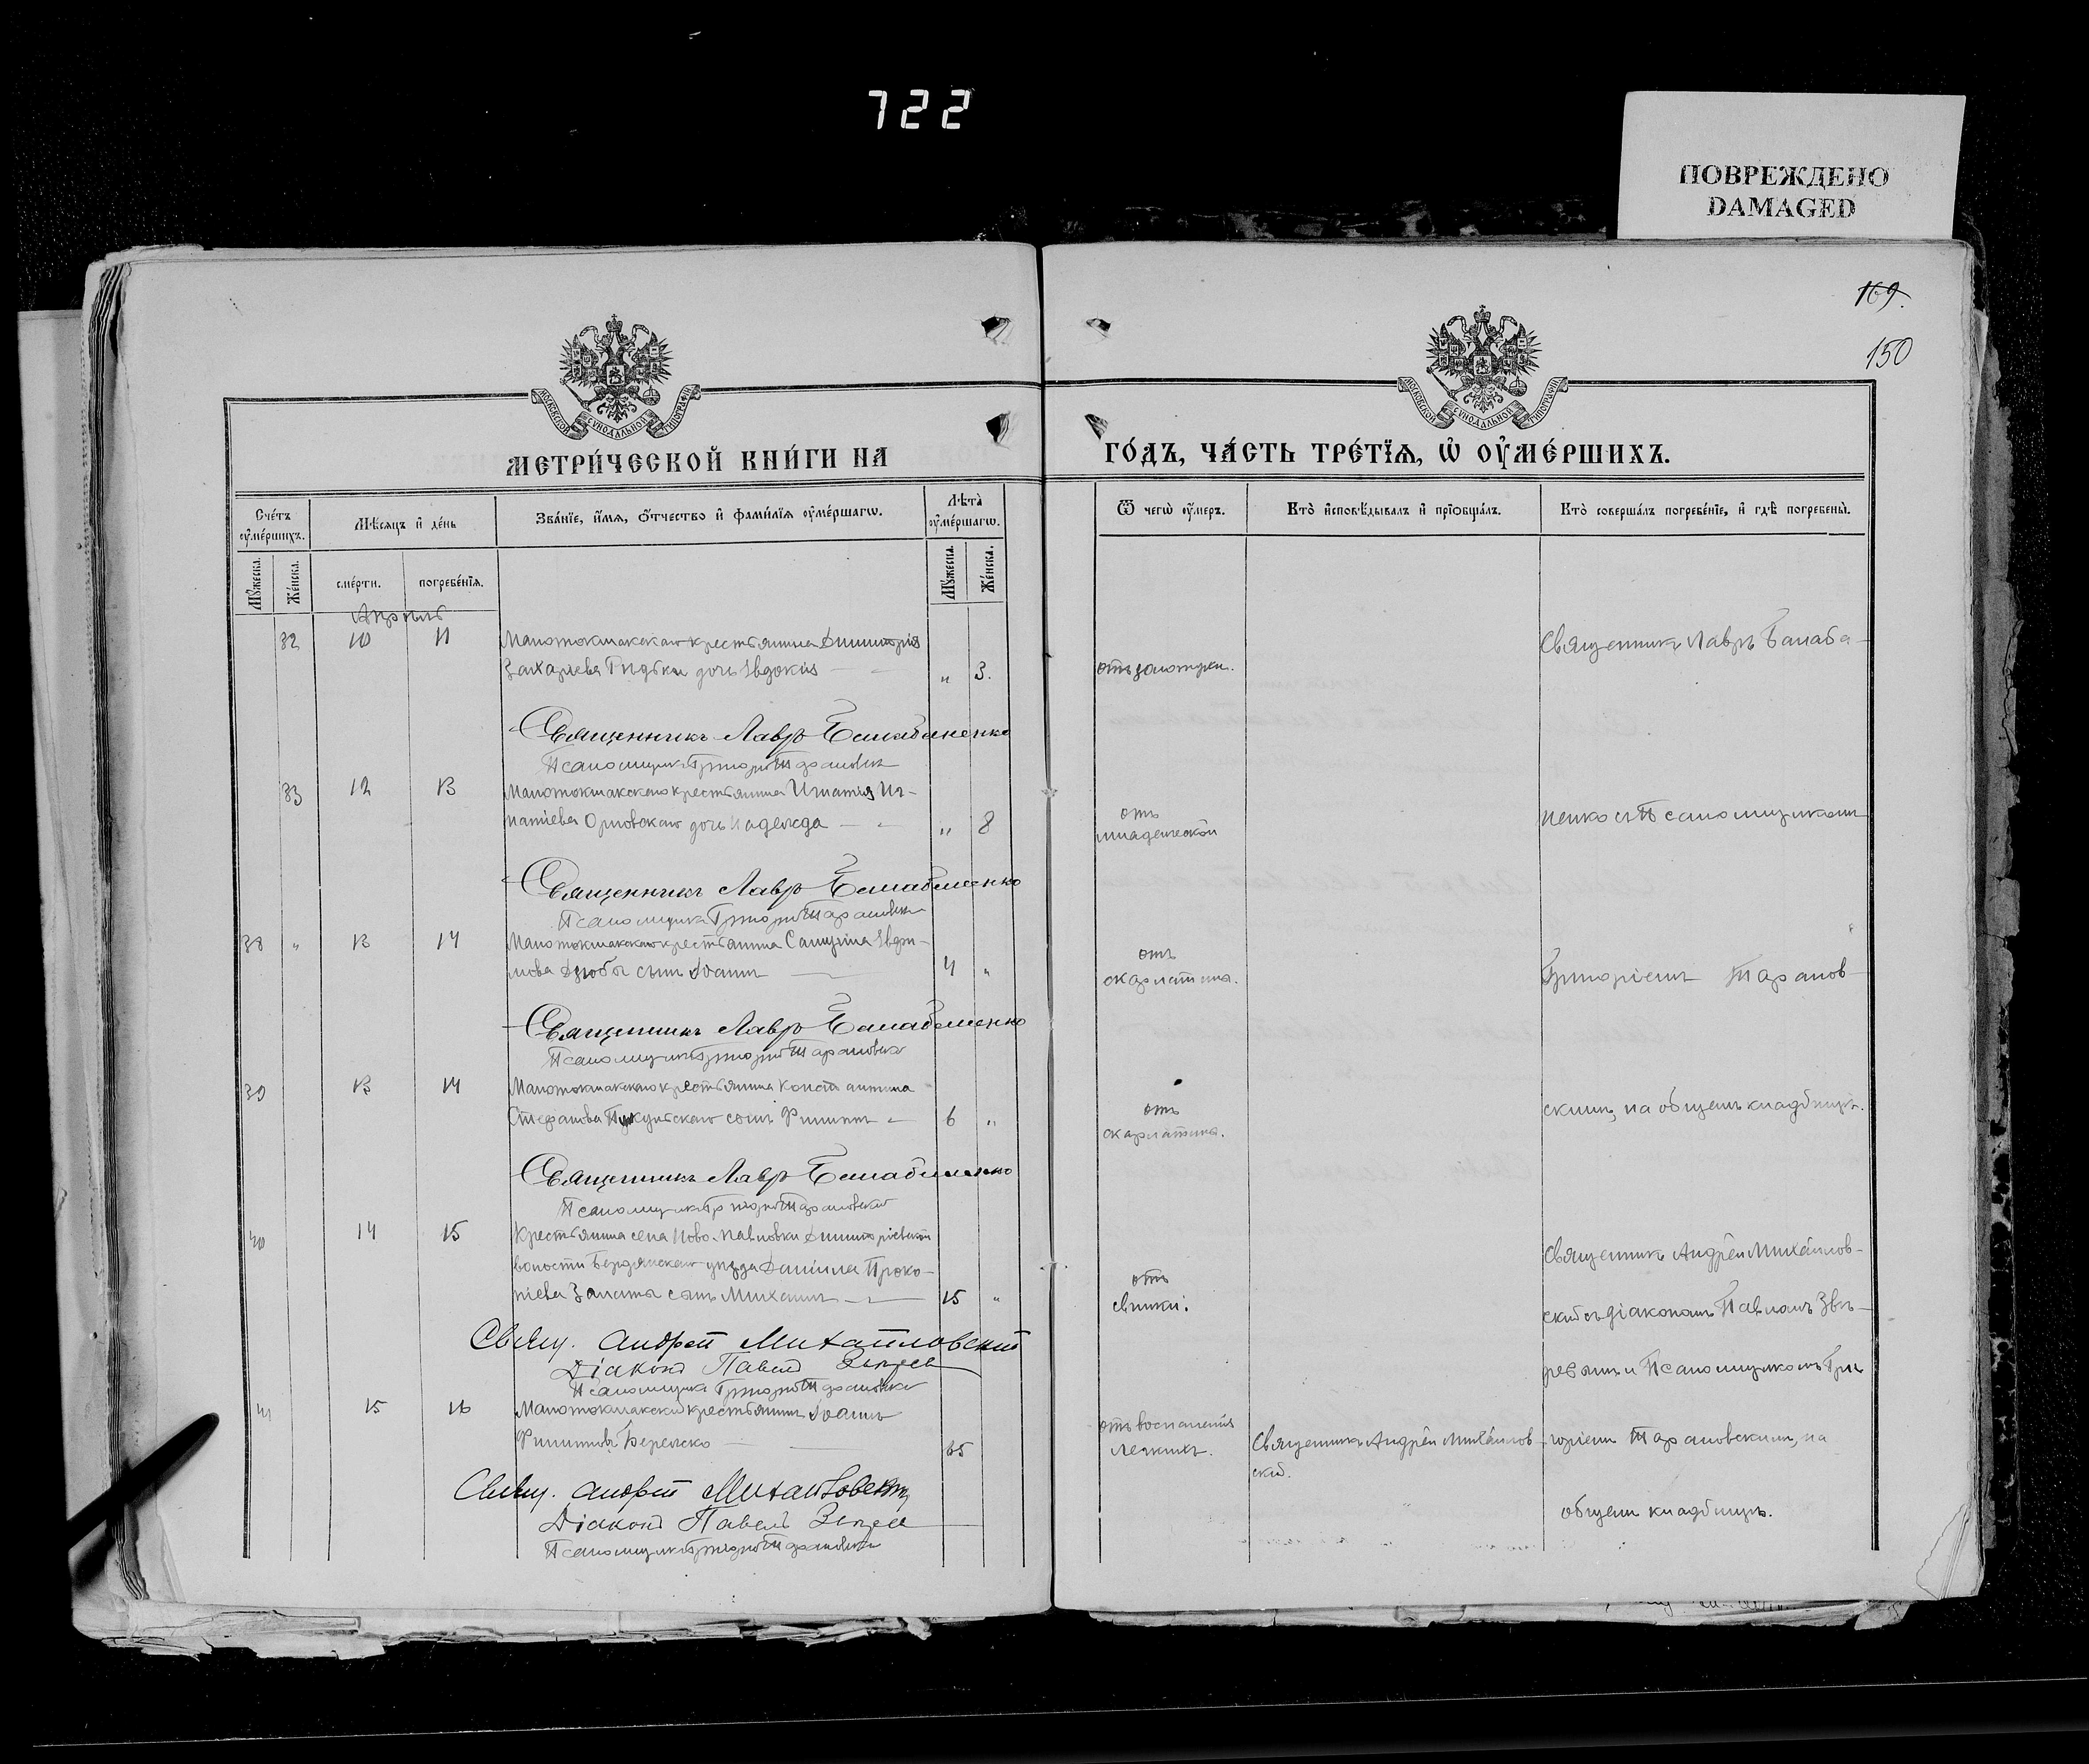 722
ПОВРЕЖДЕНО
DAMAGED
169.
150
МОСКОВСКОЙ СѴНОДАЛЬНОЙ ТИПОГРАФІИ
МОСКОВСКОЙ СѴНОДАЛЬНОЙ ТИПОГРАФІИ
МЕТРИ́ЧЕСКОЙ КНИ́ГИ НА
ГО́ДЪ, ЧА́СТЬ ТРЕ́ТЇѦ, Ѡ҆ ОУ҆МЕ́РШИХЪ.
Сче́тъ оу҆ме́ршихъ.
Мѣ́сѧцъ и҆ де́нь
Зва́нїе, и҆́мѧ, ѻ҆́тчество и҆ фами́лїѧ оу҆ме́ршагѡ.
Лѣта̀ оу҆ме́ршагѡ.
Ѿ чегѡ̀ оу҆́меръ.
Кто̀ и҆сповѣ́дывалъ и҆ прїѡбща́лъ.
Кто̀ соверша́лъ погребе́нїе, и҆ гдѣ̀ погребены̀.
Мꙋ́жеска.
Же́нска.
сме́рти.
погребе́нїѧ.
Мꙋ́жеска.
Же́нска.
Апрѣль
32 10 11 Малотокмакскаго крестьянина Димитрія
Захаріева Гнѣдки дочь Евдокія " 3. отъ золотухи. Священникъ Лавръ Балаба-
Священникъ Лавръ Балабаненко
Псаломщикъ Григорій Тарановскій
33 12 13 Малотокмакскаго крестьянина Игнатія Иг-
натіева Орловскаго дочь Надежда " 8 отъ младенческой ненко съ Псаломщикомъ
Священникъ Лавръ Балабаненко
Псаломщикъ Григорій Тарановскій
38 " 13 14 Малотокмакскаго крестьянина Самуила Евфи-
мова Дзюбы сынъ Іоаннъ 4 " отъ скарлатины. Григоріемъ Таранов-
Священникъ Лавръ Балабаненко
Псаломщикъ Григорій Тарановскій
39 13 14 Малотокмакскаго крестьянина Константина
Стефанова сынъ Филиппъ 6 " отъ скарлатины. скимъ, на общемъ кладбищѣ.
Священникъ Лавръ Балабаненко
Псаломщикъ Григорій Тарановскій
40 14 15 Крестьянина села Ново-Павловки Димитріевской
волости Бердянскаго уѣзда Даніила Проко-
піева Золаты сынъ Михаилъ 15 " отъ свинки. Священникъ Андрей Михайлов-
скій съ діакономъ Павломъ Звѣ-
Свящ. Андрей Михайловскій
Діаконъ Павелъ Звѣревъ
Псаломщикъ Григорій Тарановскій
ревымъ и Псаломщикомъ Гри-
41 15 16 Малотокмакскій крестьянинъ Іоаннъ
Филипповъ 65 отъ воспаленія легкихъ. Священникъ Андрей Михайлов-
скій.
горіемъ Тарановскимъ, на
общемъ кладбищѣ.
Свящ. Андрей Михайловскій
Діаконъ Павелъ Звѣревъ
Псаломщикъ Григорій Тарановскій